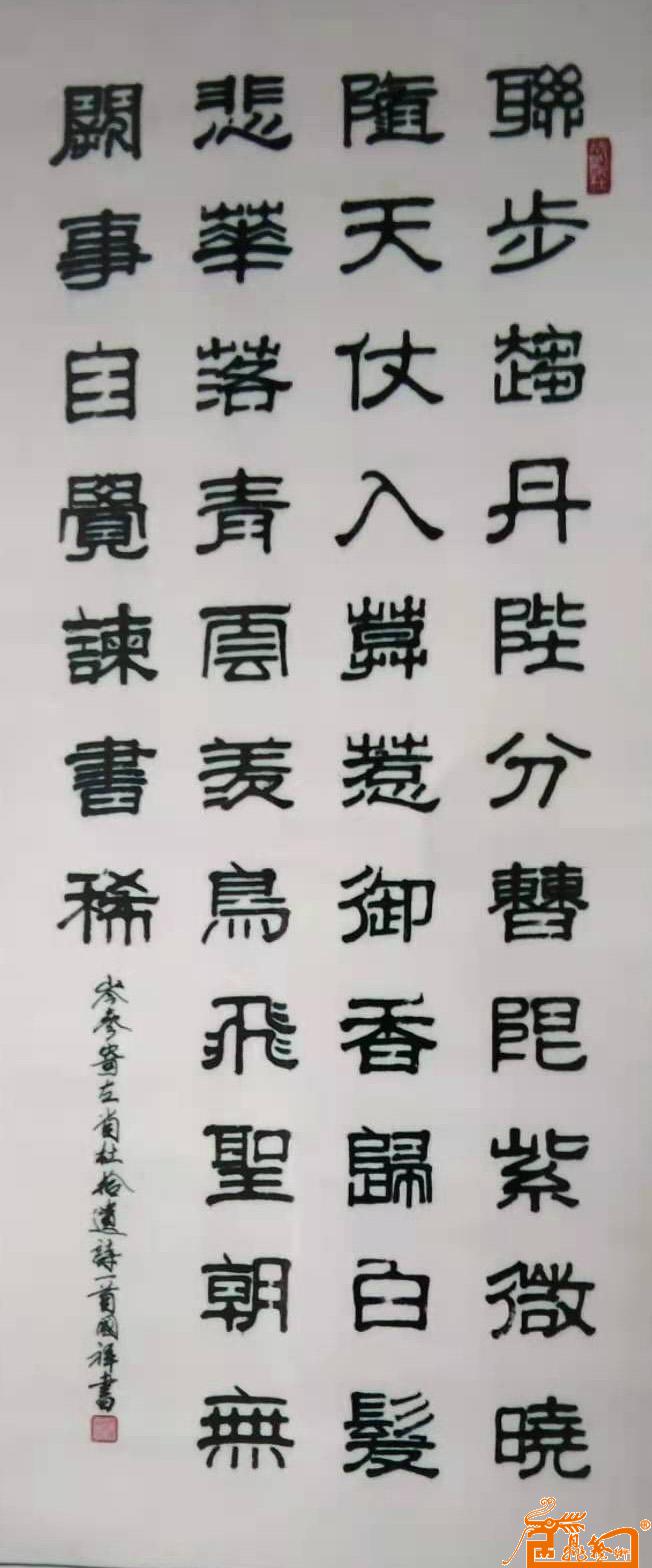 聯步趨丹陛分曹限紫微曉
隨天仗入暮惹御香歸白髮
悲華落青雲羨鳥飛聖朝無
闕事自覺諫書稀
岑參寄左省杜拾遺詩一首國祥書